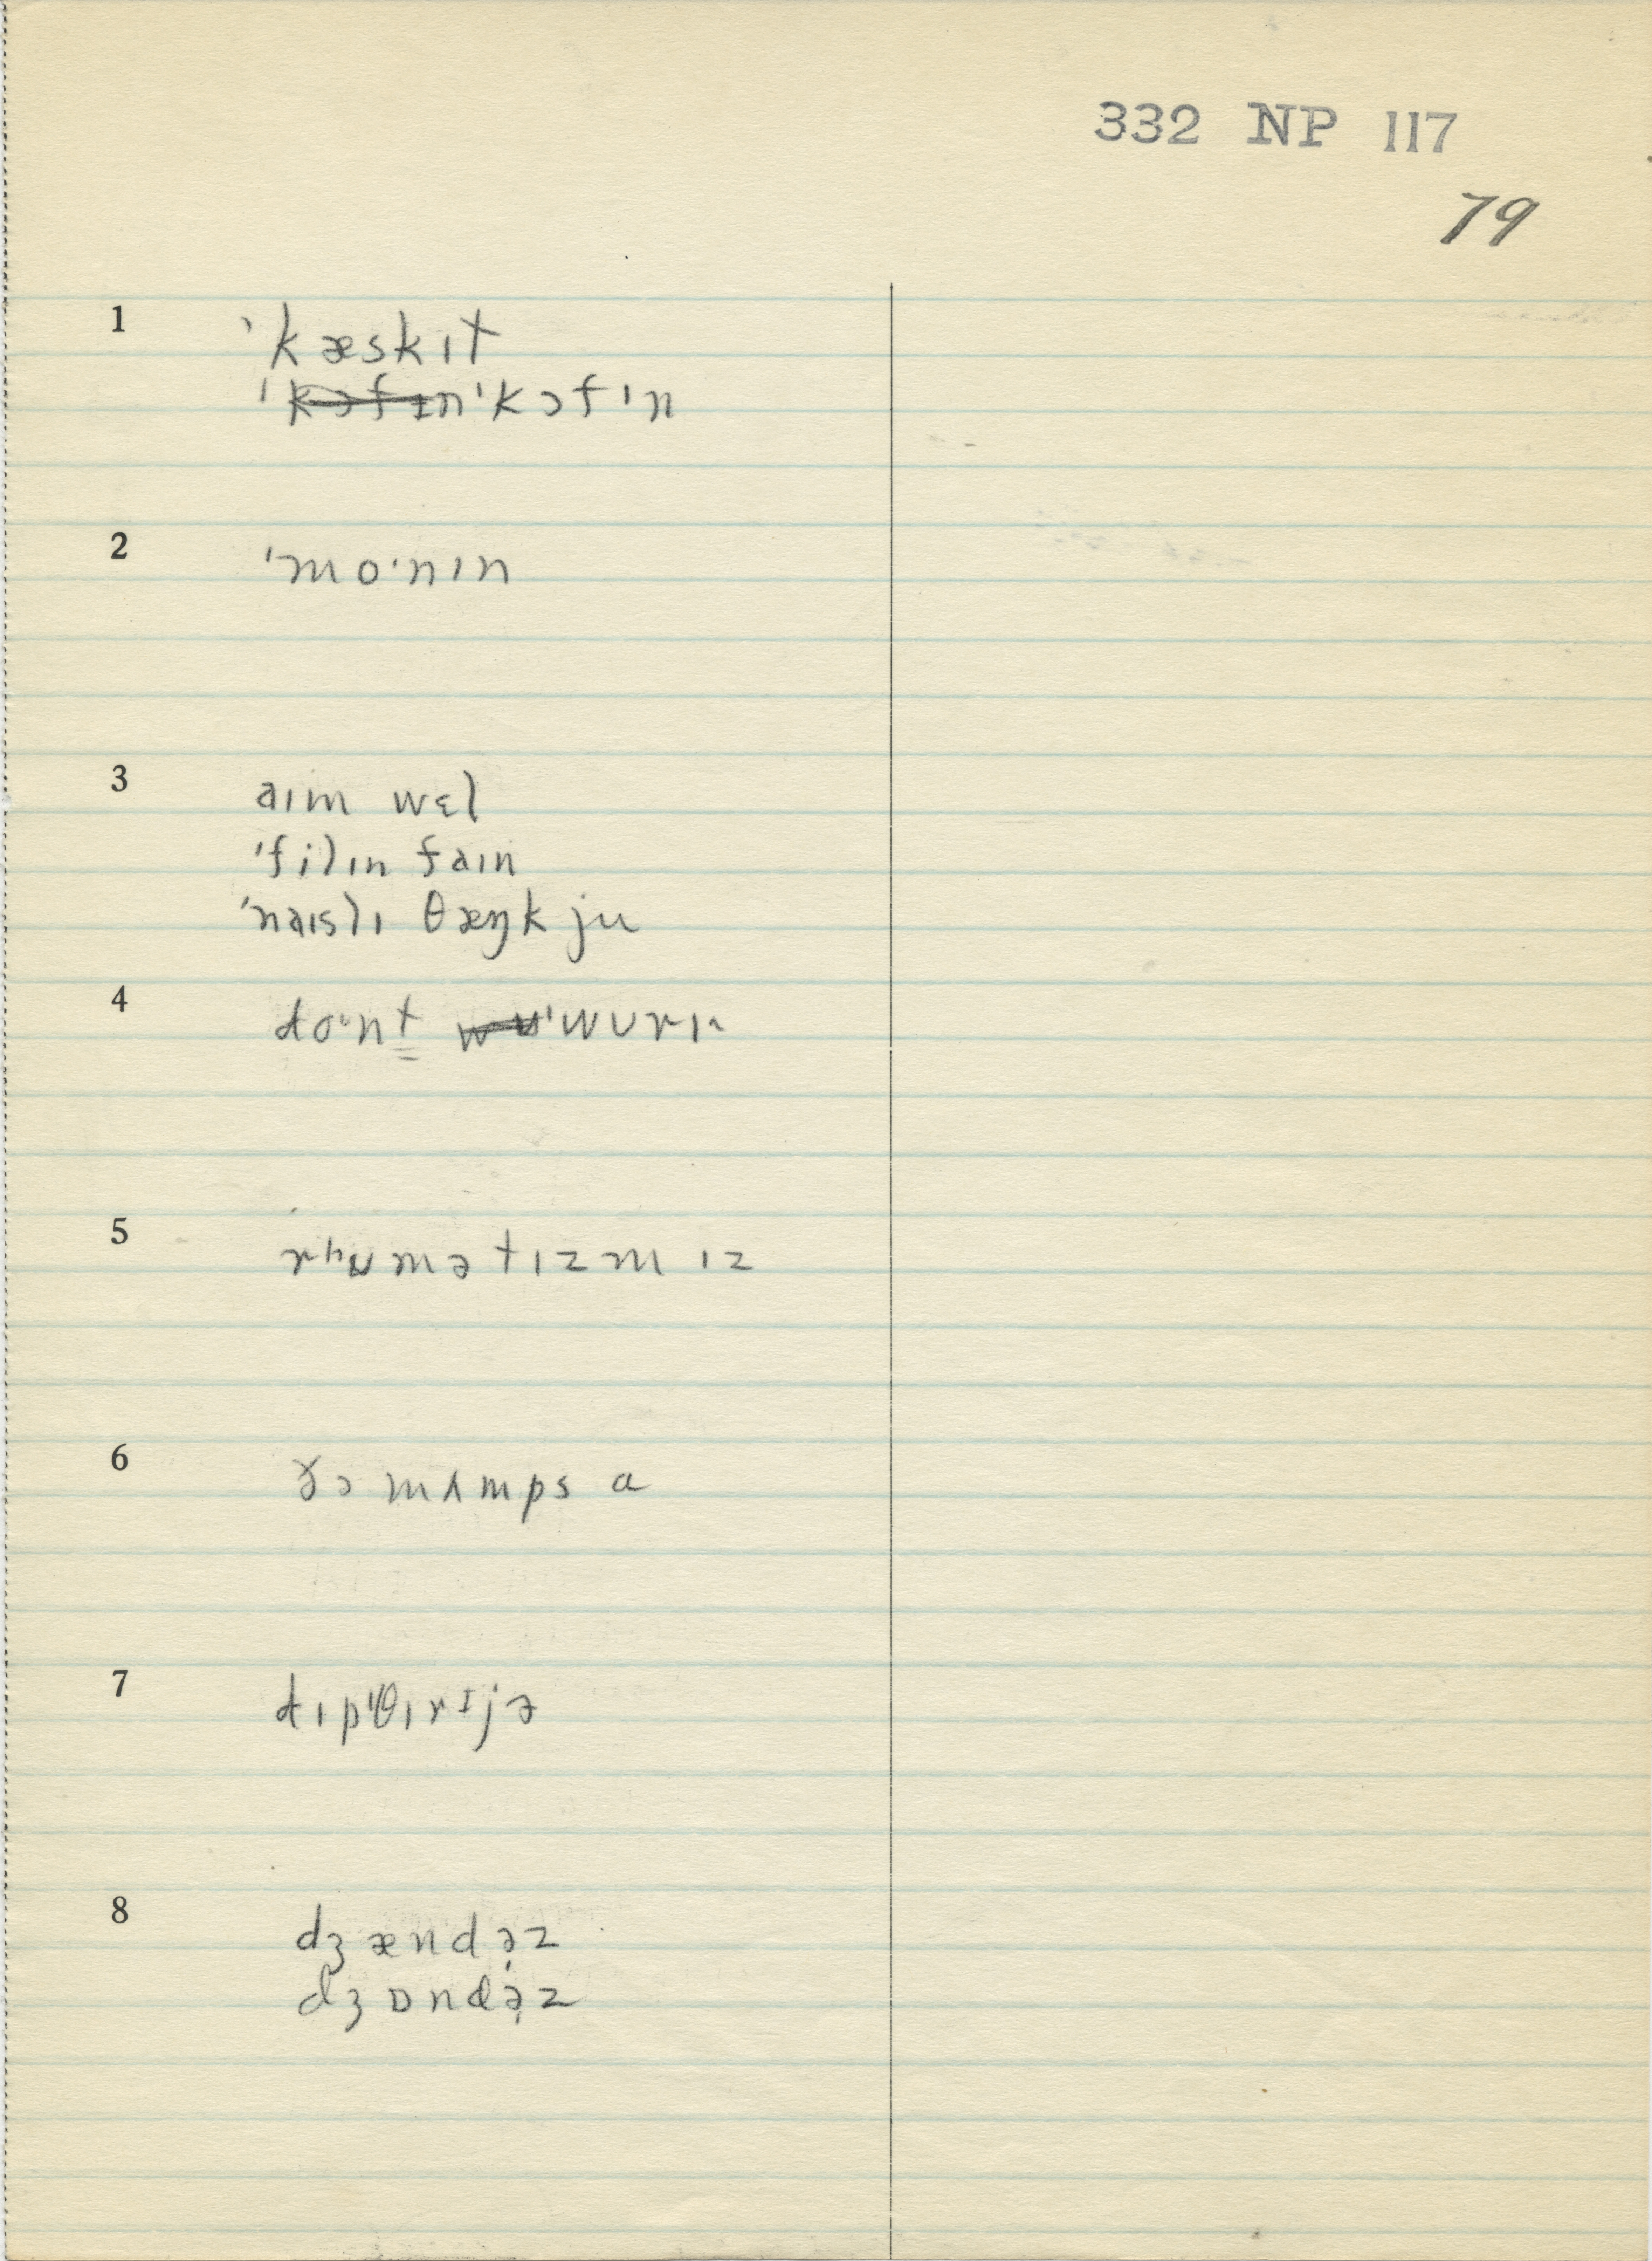 332 NP 117
79
1 ˈkæskɪt
ˈkɔfɪn ˈkɔfɪn
2 ˈmo·nɪn
3 aɪm wɛl
ˈfilɪn faɪn
ˈnaɪslɪ θæŋk ju
4 do·nt ˈwʊrɪ
5 rʰumətɪzm ɪz
6 ðə mʌmps a
7 dɪpˈθɪrɪjə
8 dʒændəz
dʒɒndəz